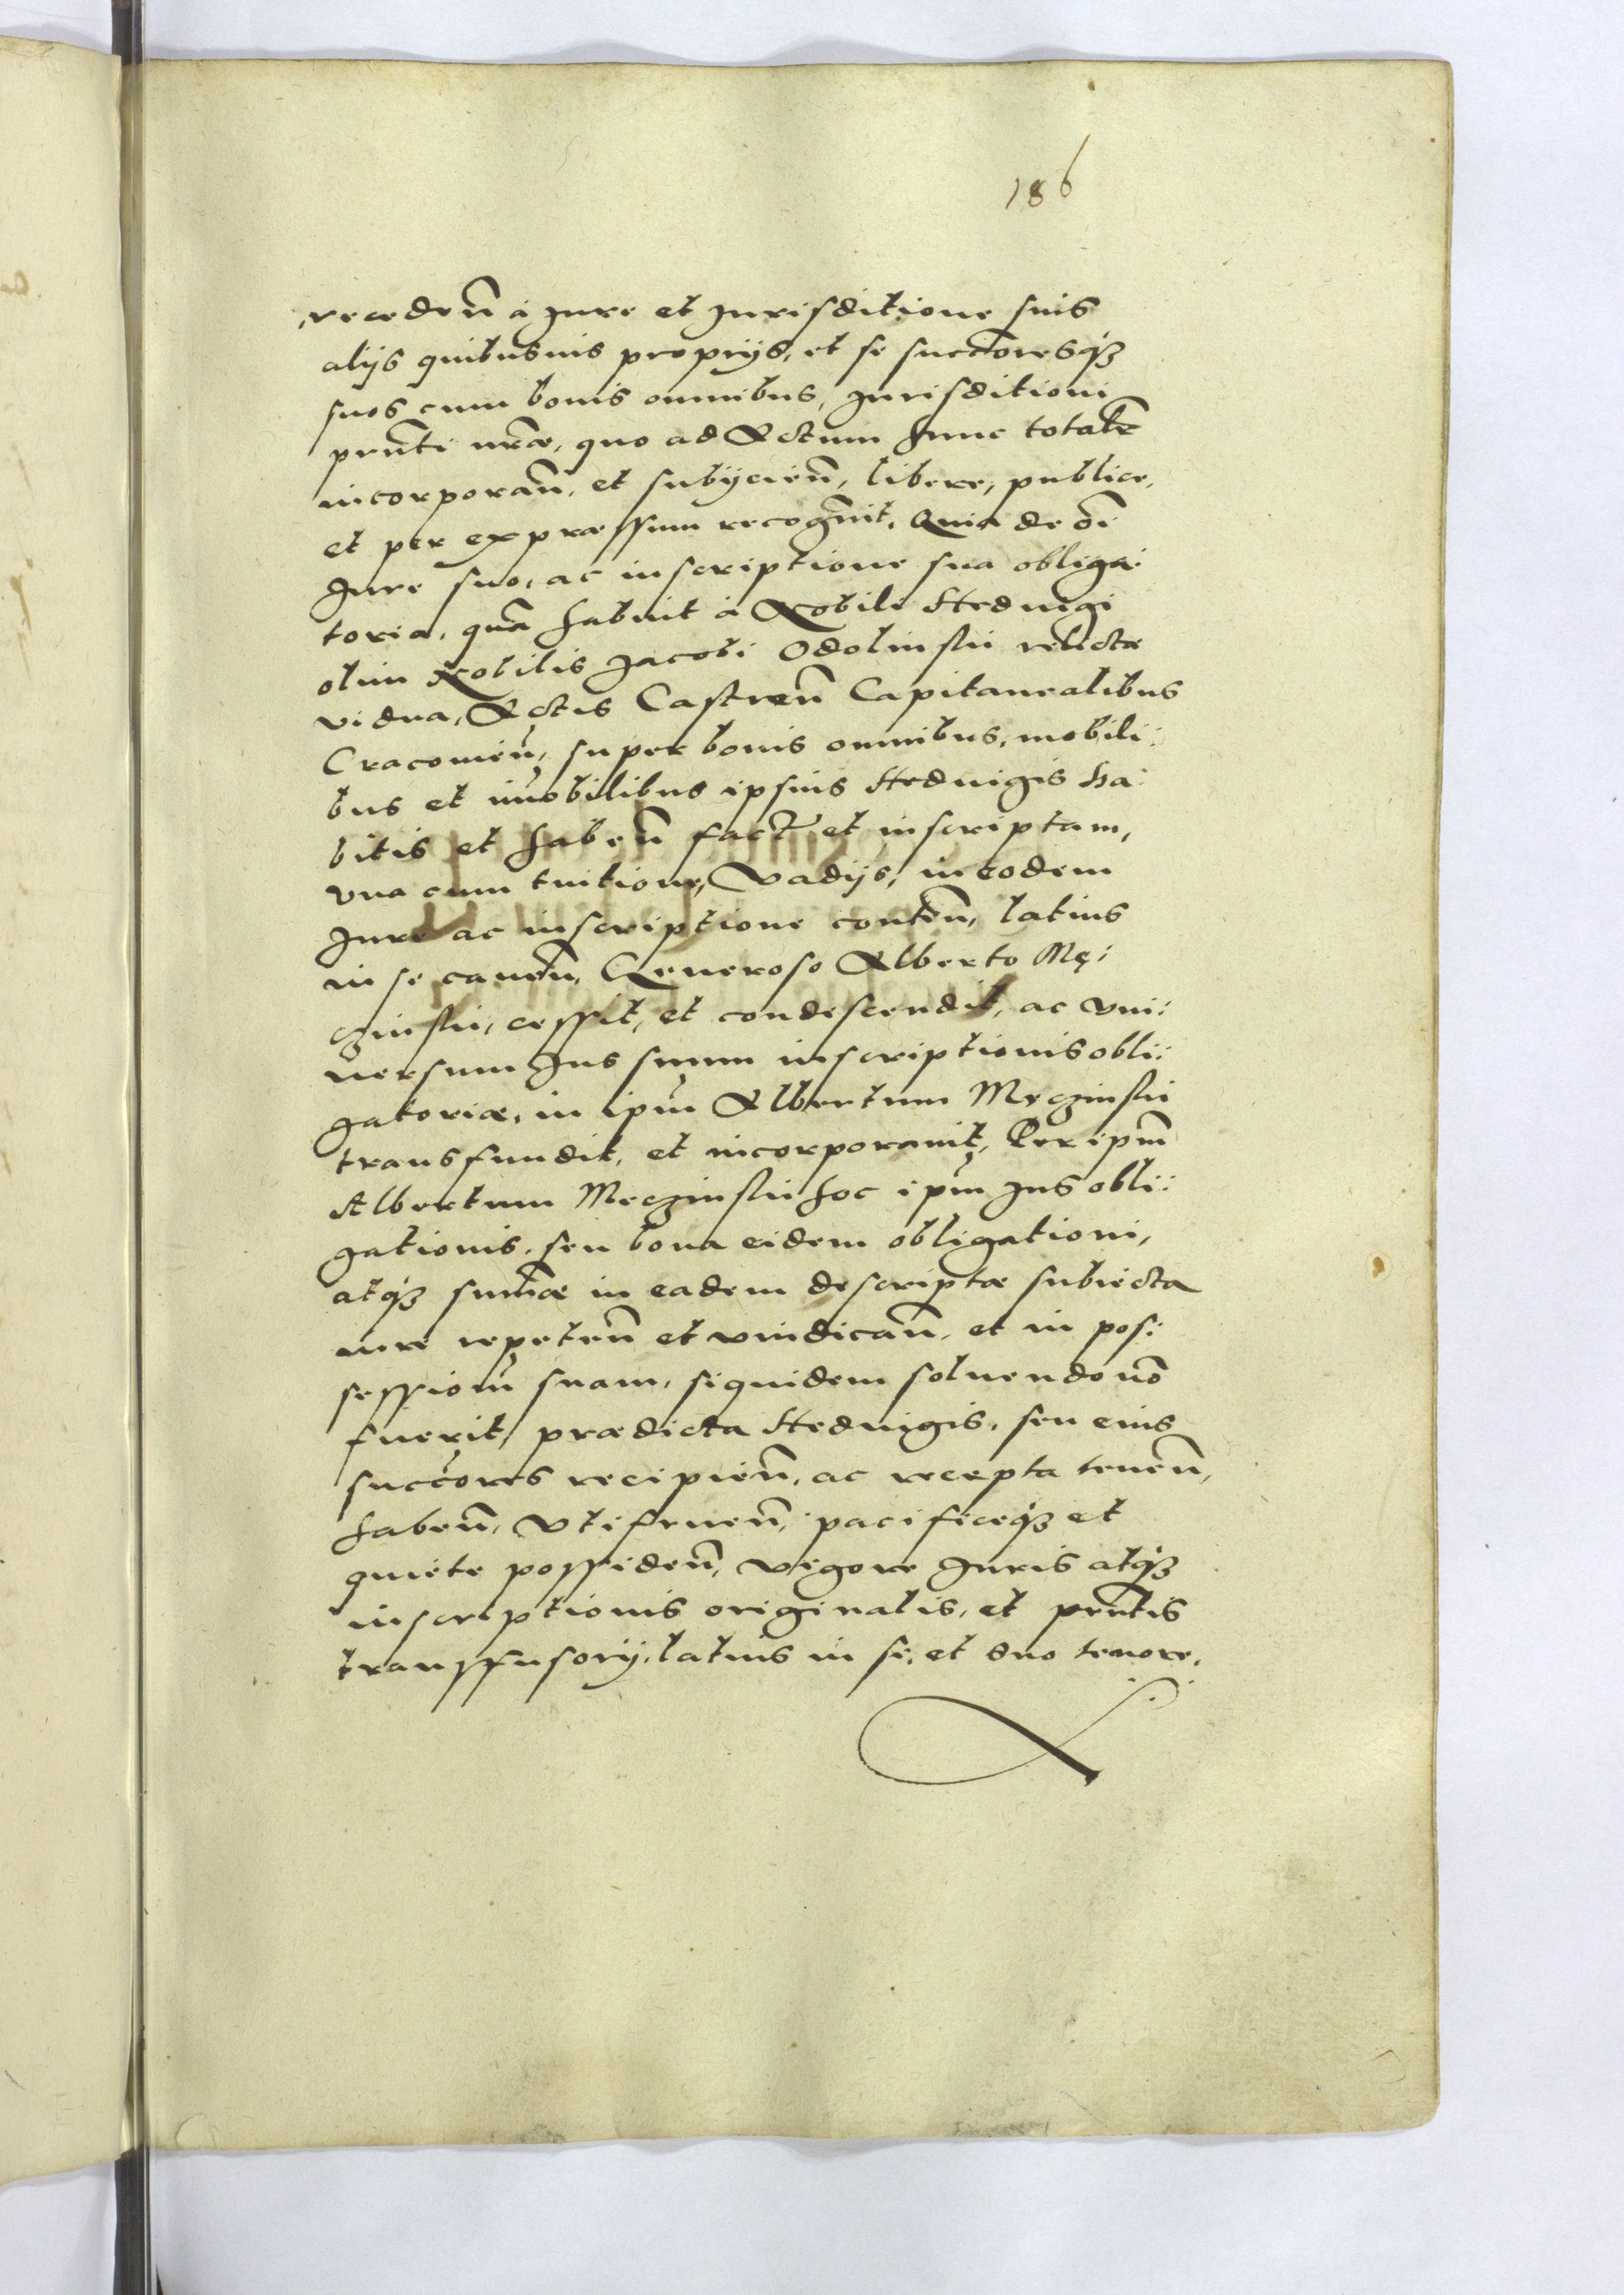 186
recedeñ à Jure et Jurisditione suis
alijs quibusuis proprijs, et se succõresq₃
suos cum bonis omnibus, Jurisditioni
prñti nr̃æ, quo ad Actum hunc totalr̃
incorporañ, et subijcieñ, libere, publice,
et per expræssum recognuit, Quia de oĩ
Jure suo, ac inscriptione sua obliga:
toria, quã habuit à Nobili Heduigi
olim Nobilis Jacobi Odolinskii relicta
vidua, Actis Castreñ Capitanealibus
Cracouieñ, super bonis omnibus, mobili:
bus et im̃obilibus ipsius Heduigis ha:
bitis et habeñ fact̃ et inscriptam,
vna cum tuitione, Vadijs, in eodem
Jure ac inscriptione conteñ, latius
in se caueñ, Generoso Alberto Mę:
czinskii, cessit, et condescendit, ac vni:
uersum Jus suum inscriptionis obli:
gatoriæ, in ipm̃ Albertum Męczinskii
transfundit, et incorporauit, Per ipm̃
Albertum Meczinskii hoc ipm̃ Jus obli:
gationis, seu bona eidem obligationi,
atq₃ sum̃æ in eadem descriptæ subiecta
iure repeteñ et vindicañ, et in pos:
sessioñ suam, siquidem soluendo nõ
fuerit, prædicta Heduigis, seu eius
succõres recipieñ, ac recepta teneñ,
habeñ, vtifrueñ, pacificeq₃ et
quiete possideñ, vigore Juris atq₃
inscriptionis originalis, et prñtis
transfusorij, latius in se, et suo tenore,